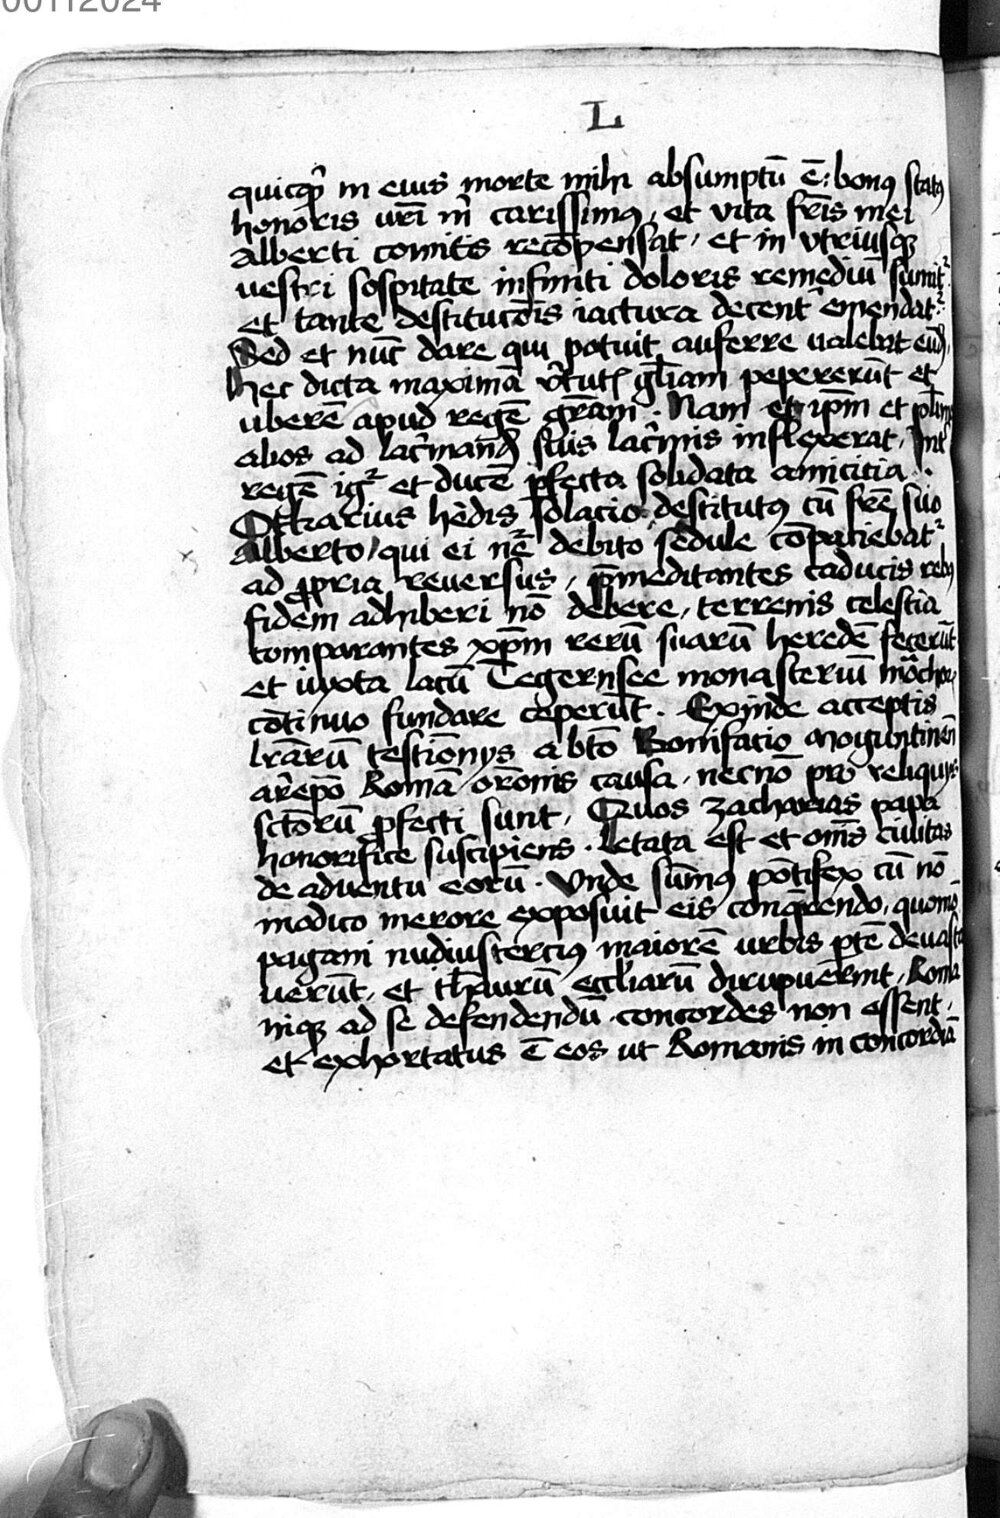 00112024
L
quicqͥd in eius morte mihi absumptū ē : bonꝰ statꝰ
honoris vr̄i m̄ carissimꝰ, et vita fr̄is mei
Alberti comitis recōpensat, et in vtriusqꝫ
vestri sospitate infiniti doloris remediū sumitᷣ
et tante destitucōis iactura decentʼ emendatᷣ
Sed et nūc dare qui potuit auferre valebit
hec dicta maximā gl̄iam pepererūt et
vberē apud regē gr̄am . Nam et ip̄m et
abos ad lacͥmand suis lacͥmis inflexerat, Int
regē igᷣ et ducē ꝑfecta solidata amicicia .
Otkarius hēdis solacio destitutꝰ cū fr̄e suo
Alberto, qui ei debito sedule cōpatiebatᷣ
ad ꝓpria reuersus, p̄meditantes caducis rebꝰ
fidem adhiberi nō debere, terrenis celestia
comparantes xp̄m rerū suarū heredē fecerūt
et iuxta lacū Tegernsee monasteriū
cōtinuo fundare ceperūt . Exinde acceptis
lr̄arū testīonijs a btō Bonifacio Moguntinēn
arͥep̄o Romā orōnis causa, necnō pro reliquijs
sctōrū ꝓfecti sunt, Quos Zacharias papa
honorifice suscipiens . Letata est et om̄s ciuitas
de aduentu eorū . Vnde sūmꝰ pōtifex cū nō
modico merore exposuit eis conq̄rendo, quomō
pagani nudiustercius maiorē vrbis ꝑtē deuasta
uerūt, et th̄aurū eccl̄iarū diripuerint, Roma
niqꝫ ad se defendendū concordes non essent .
et exhortatus ē eos ut Romanis in concordiā